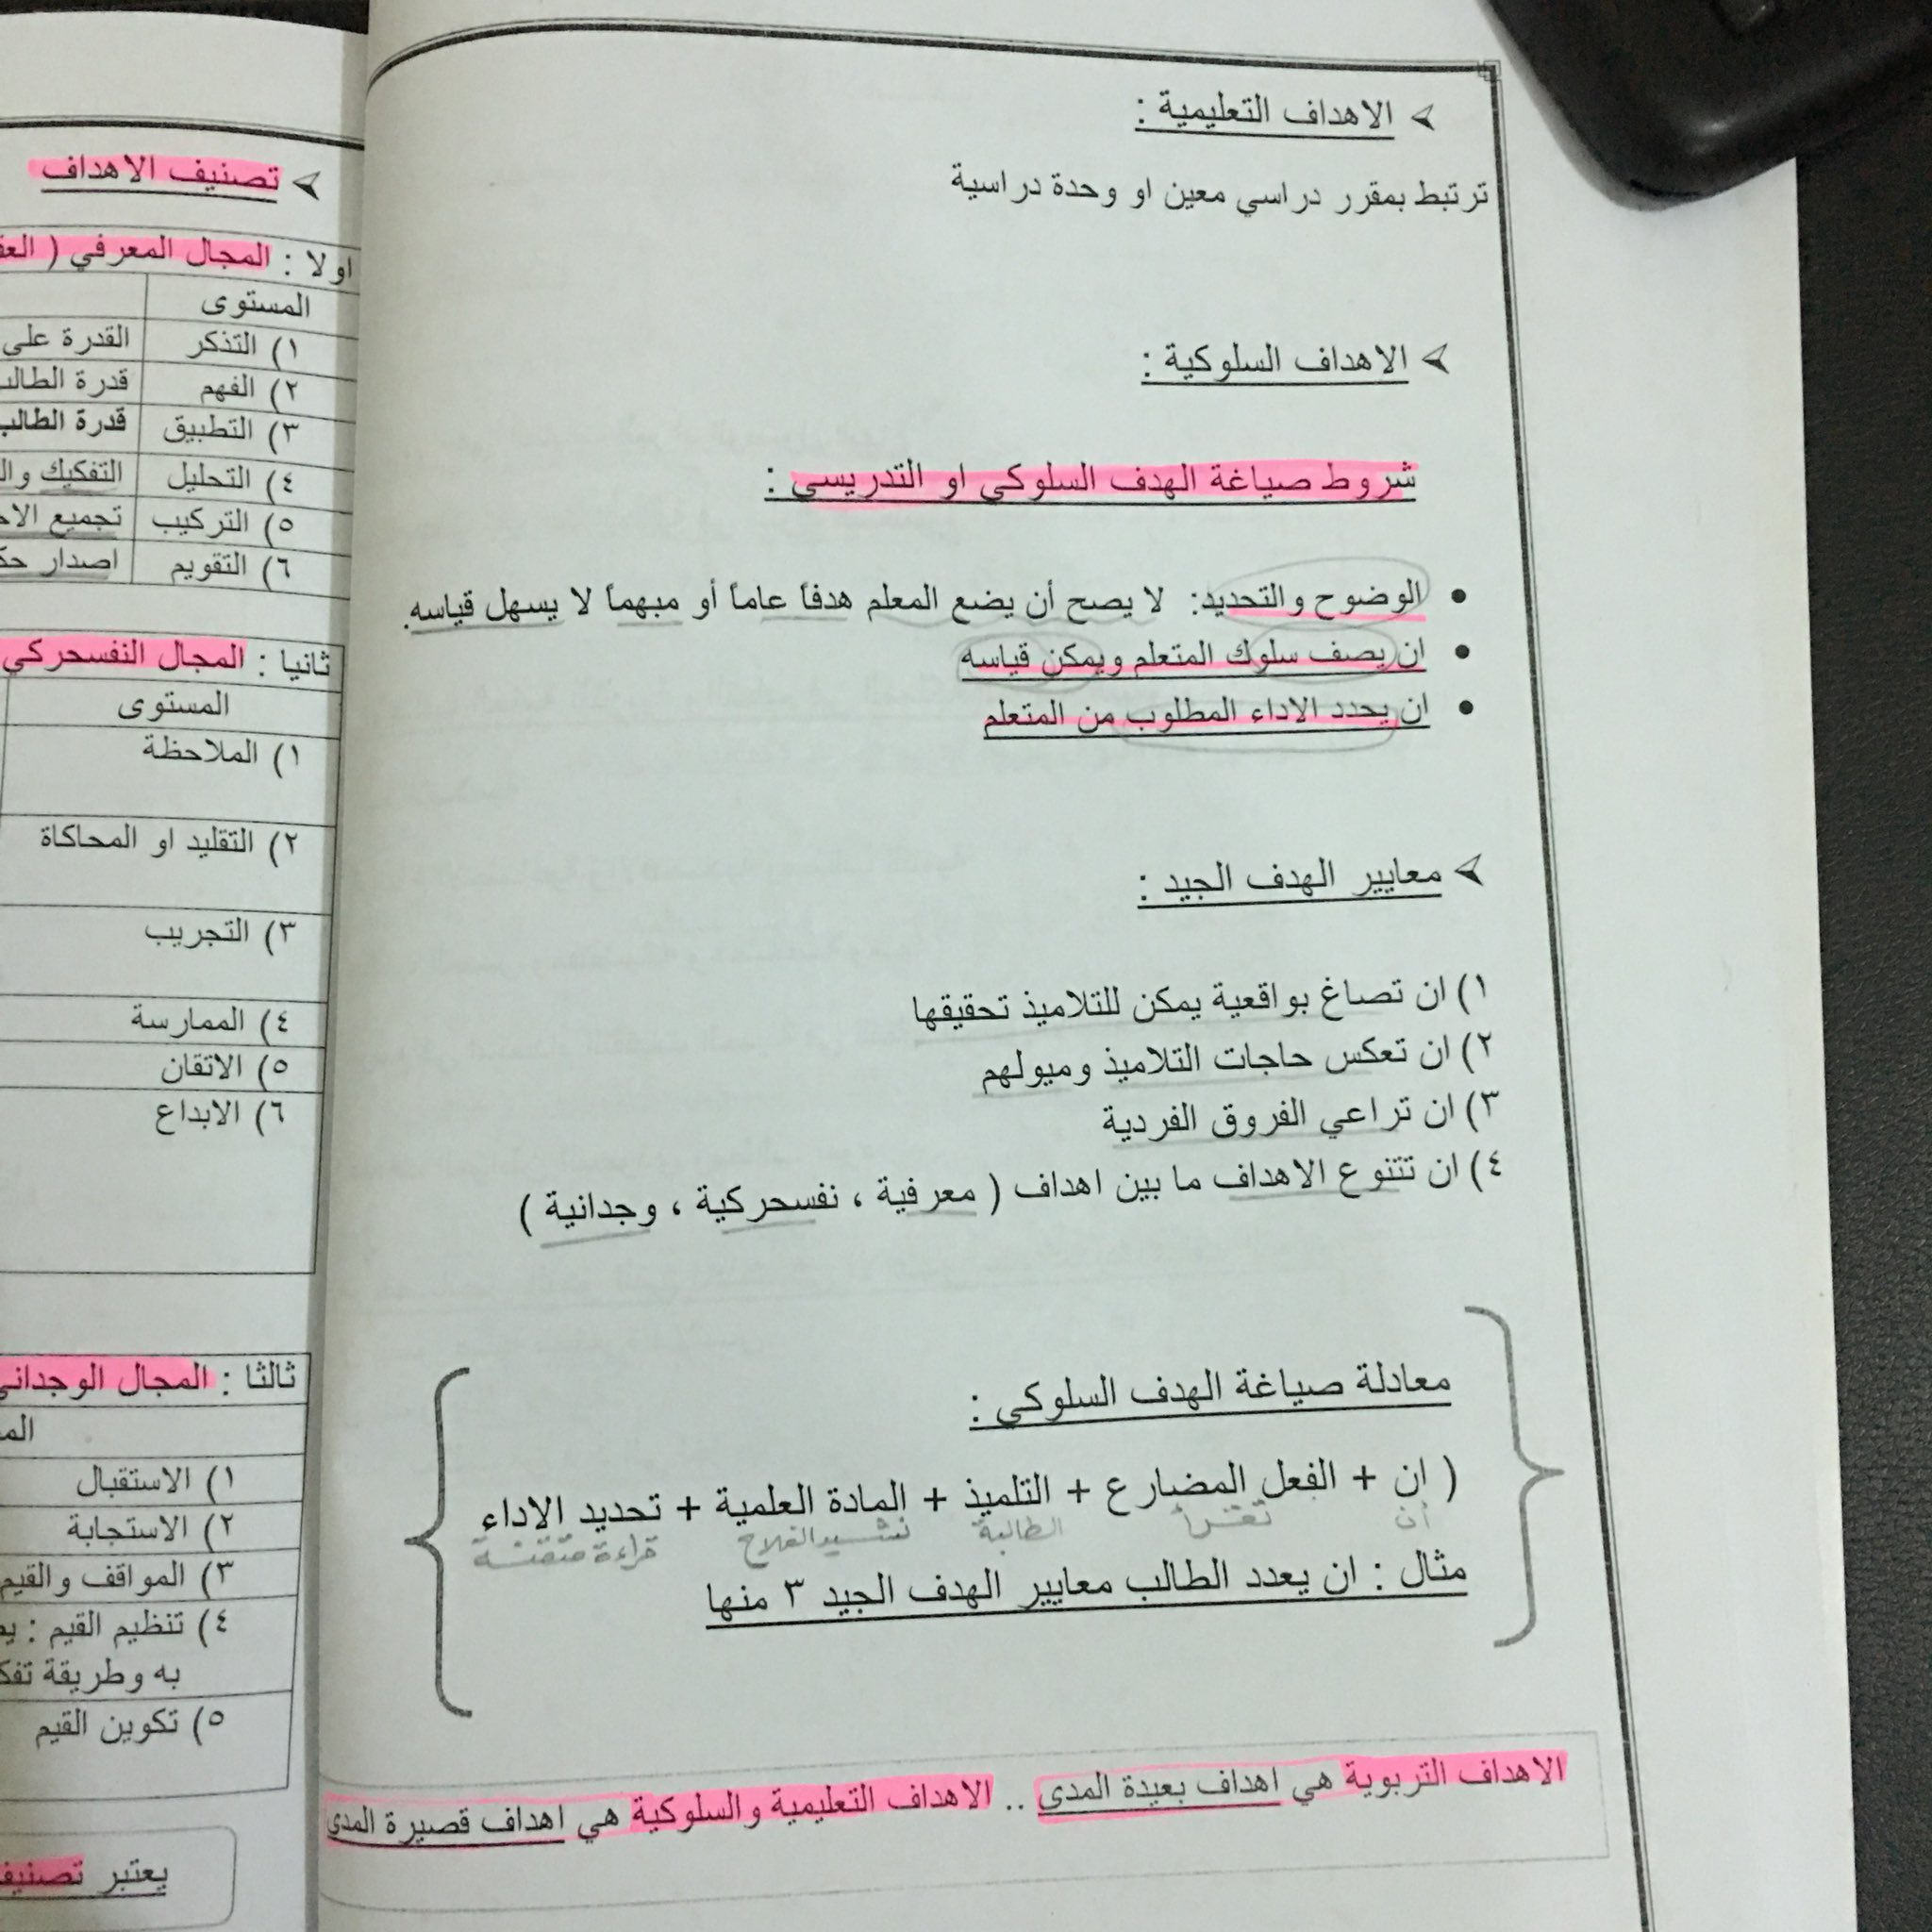 الاهداف التعليمية :
ترتبط بمقرر دراسي معين او وحدة دراسية
الاهداف السلوكية :
شروط صياغة الهدف السلوكي او التدريسي :
الوضوح والتحديد: لا يصح أن يضع المعلم هدفاً عاماً أو مبهماً لا يسهل قياسه.
ان يصف سلوك المتعلم ويمكن قياسه
ان يحدد الاداء المطلوب من المتعلم
معايير الهدف الجيد :
١) ان تصاغ بواقعية يمكن للتلاميذ تحقيقها
٢) ان تعكس حاجات التلاميذ وميولهم
٣) ان تراعي الفروق الفردية
٤) ان تتنوع الاهداف ما بين اهداف ( معرفية ، نفسحركية ، وجدانية )
معادلة صياغة الهدف السلوكي :
( ان + الفعل المضارع + التلميذ + المادة العلمية + تحديد الاداء
أن تقرأ الطالبة نشيد الفلاح قراءة متقنة
مثال : ان يعدد الطالب معايير الهدف الجيد ٣ منها
الاهداف التربوية هي اهداف بعيدة المدى .. الاهداف التعليمية والسلوكية هي اهداف قصيرة المدى
تصنيف الاهداف
اولا : المجال المعرفي (
المستوى
١) التذكر القدرة على
٢) الفهم قدرة
٣) التطبيق قدرة
٤) التحليل التفكيك
٥) التركيب تجميع
٦) التقويم اصدار
ثانيا : المجال النفسحركي
المستوى
١) الملاحظة
٢) التقليد او المحاكاة
٣) التجريب
٤) الممارسة
٥) الاتقان
٦) الابداع
ثالثا : المجال الوجداني
١) الاستقبال
٢) الاستجابة
٣) المواقف والقيم
٤) تنظيم القيم :
به وطريقة
٥) تكوين القيم
يعتبر